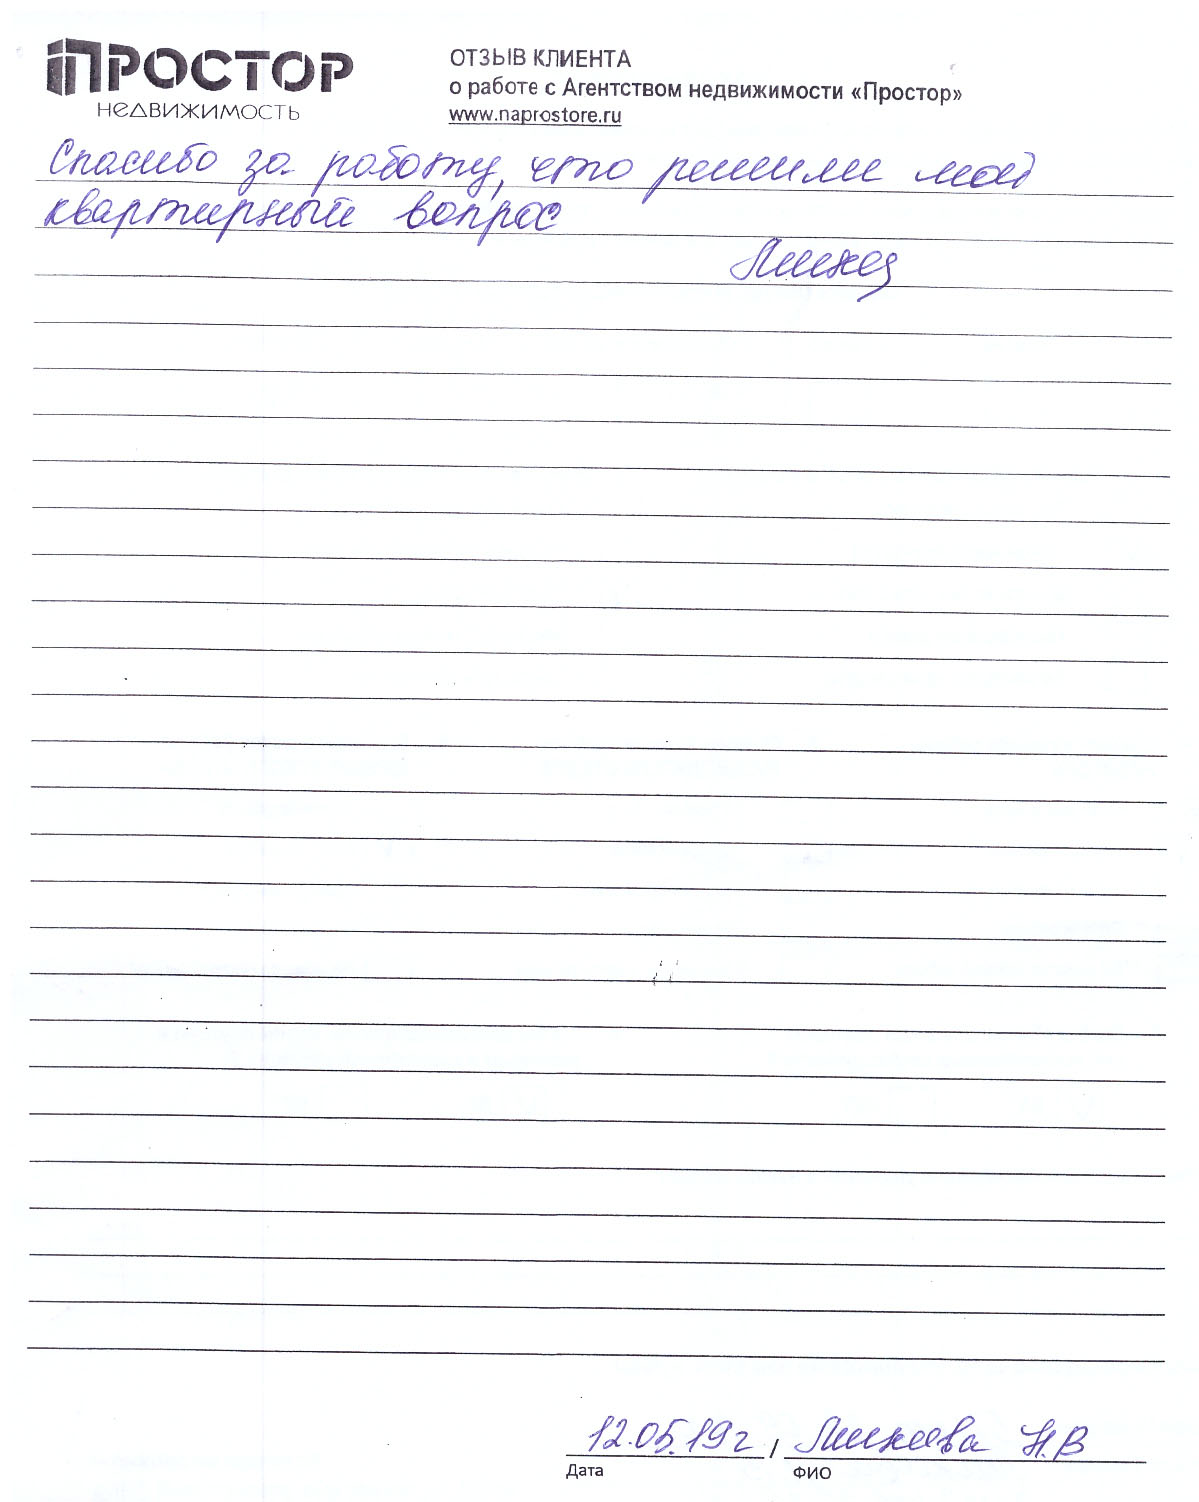 ПРОСТОР
недвижимость
ОТЗЫВ КЛИЕНТА
о работе с Агентством недвижимости «Простор»
www.naprostore.ru
Спасибо за работу, что решили мой
квартирный вопрос
12.05.19г, Н.В
Дата ФИО